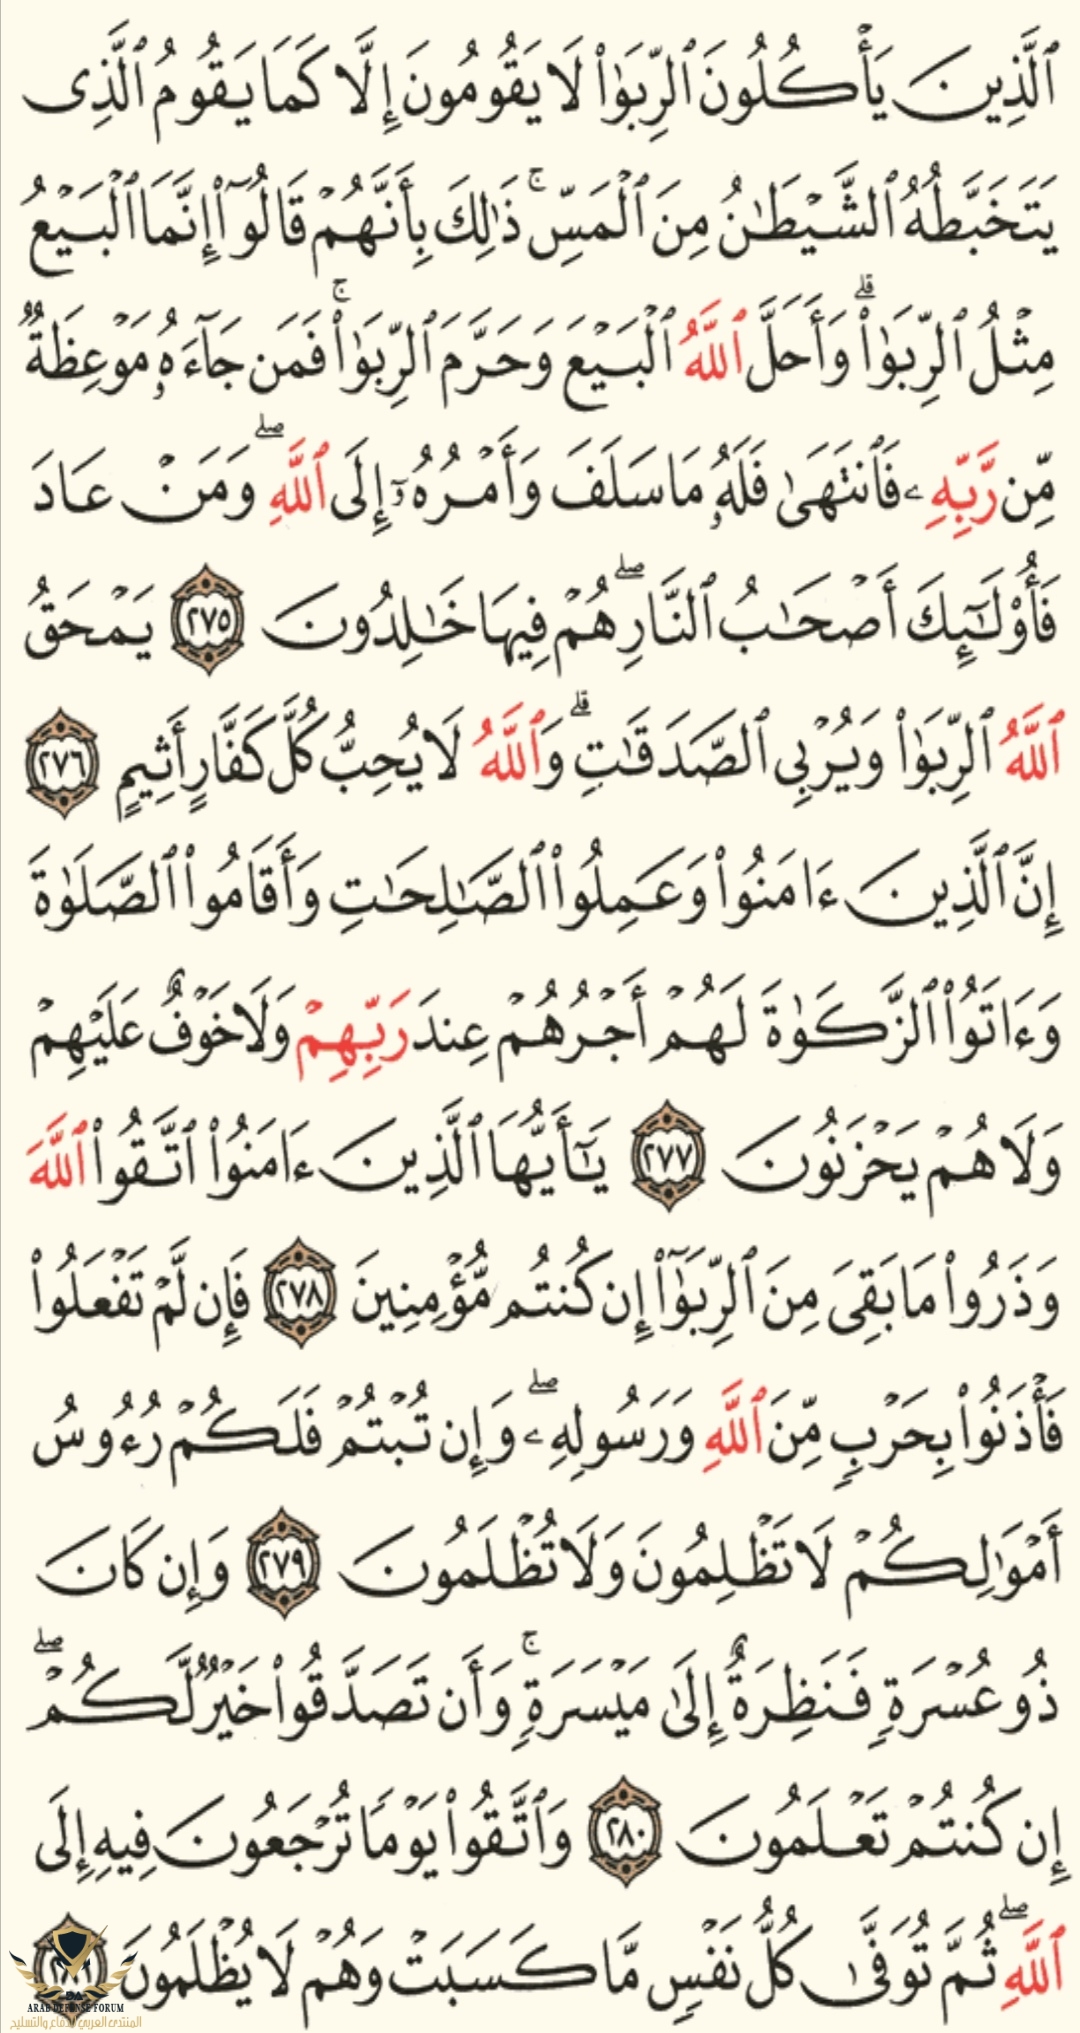 ٱلَّذِينَ يَأۡكُلُونَ ٱلرِّبَوٰاْ لَا يَقُومُونَ إِلَّا كَمَا يَقُومُ ٱلَّذِى
يَتَخَبَّطُهُ ٱلشَّيۡطَٰنُ مِنَ ٱلۡمَسِّۚ ذَٰلِكَ بِأَنَّهُمۡ قَالُوٓاْ إِنَّمَا ٱلۡبَيۡعُ
مِثۡلُ ٱلرِّبَوٰاْۗ وَأَحَلَّ ٱللَّهُ ٱلۡبَيۡعَ وَحَرَّمَ ٱلرِّبَوٰاْۚ فَمَن جَآءَهُۥ مَوۡعِظَةٌ
مِّن رَّبِّهِۦ فَٱنتَهَىٰ فَلَهُۥ مَا سَلَفَ وَأَمۡرُهُۥٓ إِلَى ٱللَّهِۖ وَمَنۡ عَادَ
فَأُوْلَٰٓئِكَ أَصۡحَٰبُ ٱلنَّارِۖ هُمۡ فِيهَا خَٰلِدُونَ ٢٧٥ يَمۡحَقُ
ٱللَّهُ ٱلرِّبَوٰاْ وَيُرۡبِى ٱلصَّدَقَٰتِۗ وَٱللَّهُ لَا يُحِبُّ كُلَّ كَفَّارٍ أَثِيمٍ ٢٧٦
إِنَّ ٱلَّذِينَ ءَامَنُواْ وَعَمِلُواْ ٱلصَّٰلِحَٰتِ وَأَقَامُواْ ٱلصَّلَوٰةَ
وَءَاتَوُاْ ٱلزَّكَوٰةَ لَهُمۡ أَجۡرُهُمۡ عِندَ رَبِّهِمۡ وَلَا خَوۡفٌ عَلَيۡهِمۡ
وَلَا هُمۡ يَحۡزَنُونَ ٢٧٧ يَٰٓأَيُّهَا ٱلَّذِينَ ءَامَنُواْ ٱتَّقُواْ ٱللَّهَ
وَذَرُواْ مَا بَقِىَ مِنَ ٱلرِّبَوٰٓاْ إِن كُنتُم مُّؤۡمِنِينَ ٢٧٨ فَإِن لَّمۡ تَفۡعَلُواْ
فَأۡذَنُواْ بِحَرۡبٍ مِّنَ ٱللَّهِ وَرَسُولِهِۦۖ وَإِن تُبۡتُمۡ فَلَكُمۡ رُءُوسُ
أَمۡوَٰلِكُمۡ لَا تَظۡلِمُونَ وَلَا تُظۡلَمُونَ ٢٧٩ وَإِن كَانَ
ذُو عُسۡرَةٍ فَنَظِرَةٌ إِلَىٰ مَيۡسَرَةٍۚ وَأَن تَصَدَّقُواْ خَيۡرٌ لَّكُمۡۖ
إِن كُنتُمۡ تَعۡلَمُونَ ٢٨٠ وَٱتَّقُواْ يَوۡمًا تُرۡجَعُونَ فِيهِ إِلَى
ٱللَّهِۖ ثُمَّ تُوَفَّىٰ كُلُّ نَفۡسٍ مَّا كَسَبَتۡ وَهُمۡ لَا يُظۡلَمُونَ ٢٨١
ARAB DEFENSE FORUM
المنتدى العربي للدفاع والتسليح